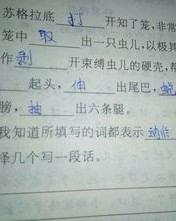 苏格拉底 打 开知了笼,非常
笼中 取 出一只虫儿,以极其
作 剥 开束缚虫儿的硬壳,帮
起头, 伸 出尾巴,
膀, 抽 出六条腿。
我知道所填写的词都表示 动作
择几个写一段话。